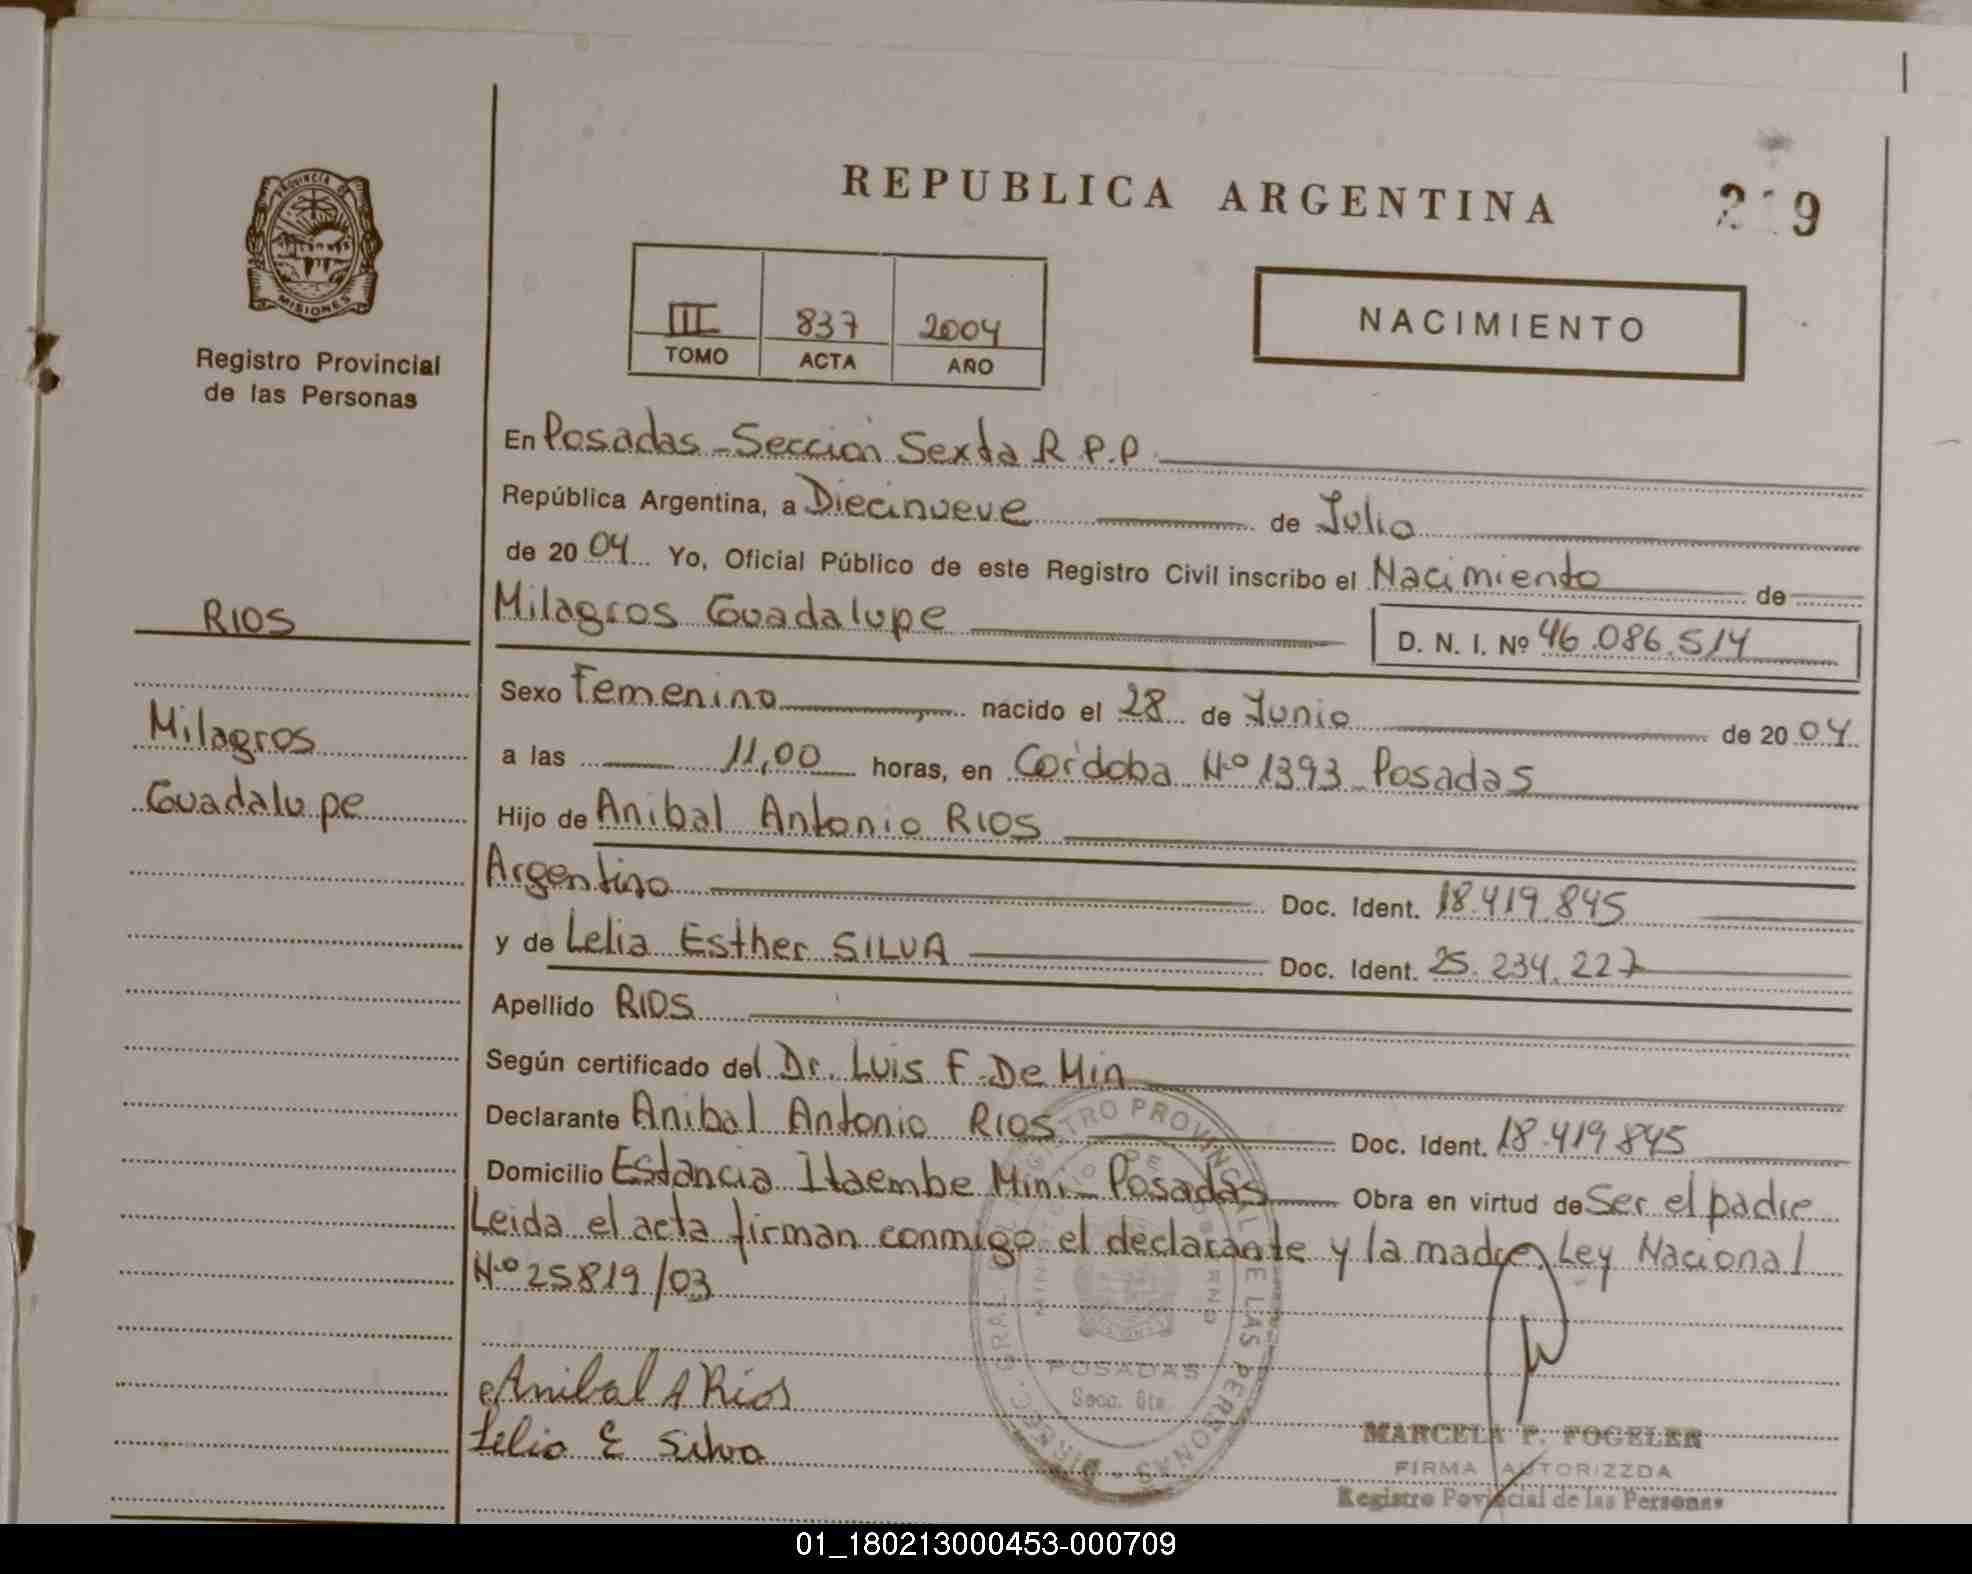 REPUBLICA ARGENTINA
PROVINCIA DE
MISIONES
Registro Provincial
de las Personas
III 837 2004
TOMO ACTA AÑO
NACIMIENTO
En Posadas - Sección Sexta R.P.P.
República Argentina, a Diecinueve de Julio
de 20 04 Yo, Oficial Público de este Registro Civil inscribo el Nacimiento de
RIOS
Milagros Guadalupe
D. N. I. Nº 46.086.514
Sexo Femenino nacido el 28 de Junio de 20 04
Milagros
a las 11,00 horas, en Córdoba Nº 1393 - Posadas
Guadalupe
Hijo de Anibal Antonio RIOS
Argentino Doc. Ident. 18.419.845
y de Lelia Esther SILVA Doc. Ident. 25.234.227
Apellido RIOS
Según certificado del Dr. Luis F. De Min
Declarante Anibal Antonio RIOS Doc. Ident. 18.419.845
Domicilio Estancia Itaembe Mini - Posadas Obra en virtud de Ser el padre
Leida el acta firman conmigo el declarante y la madre. Ley Nacional
Nº 25819/03
Anibal A Rios
Lelia E Silva
DIREC. GRAL. REGISTRO PROVINCIAL DE LAS PERSONAS
MINISTERIO DE GOBIERNO
POSADAS
Secc. 6ta.
MARCELA F. FOGELER
FIRMA AUTORIZZDA
Registro Povincial de las Personas
01_180213000453-000709